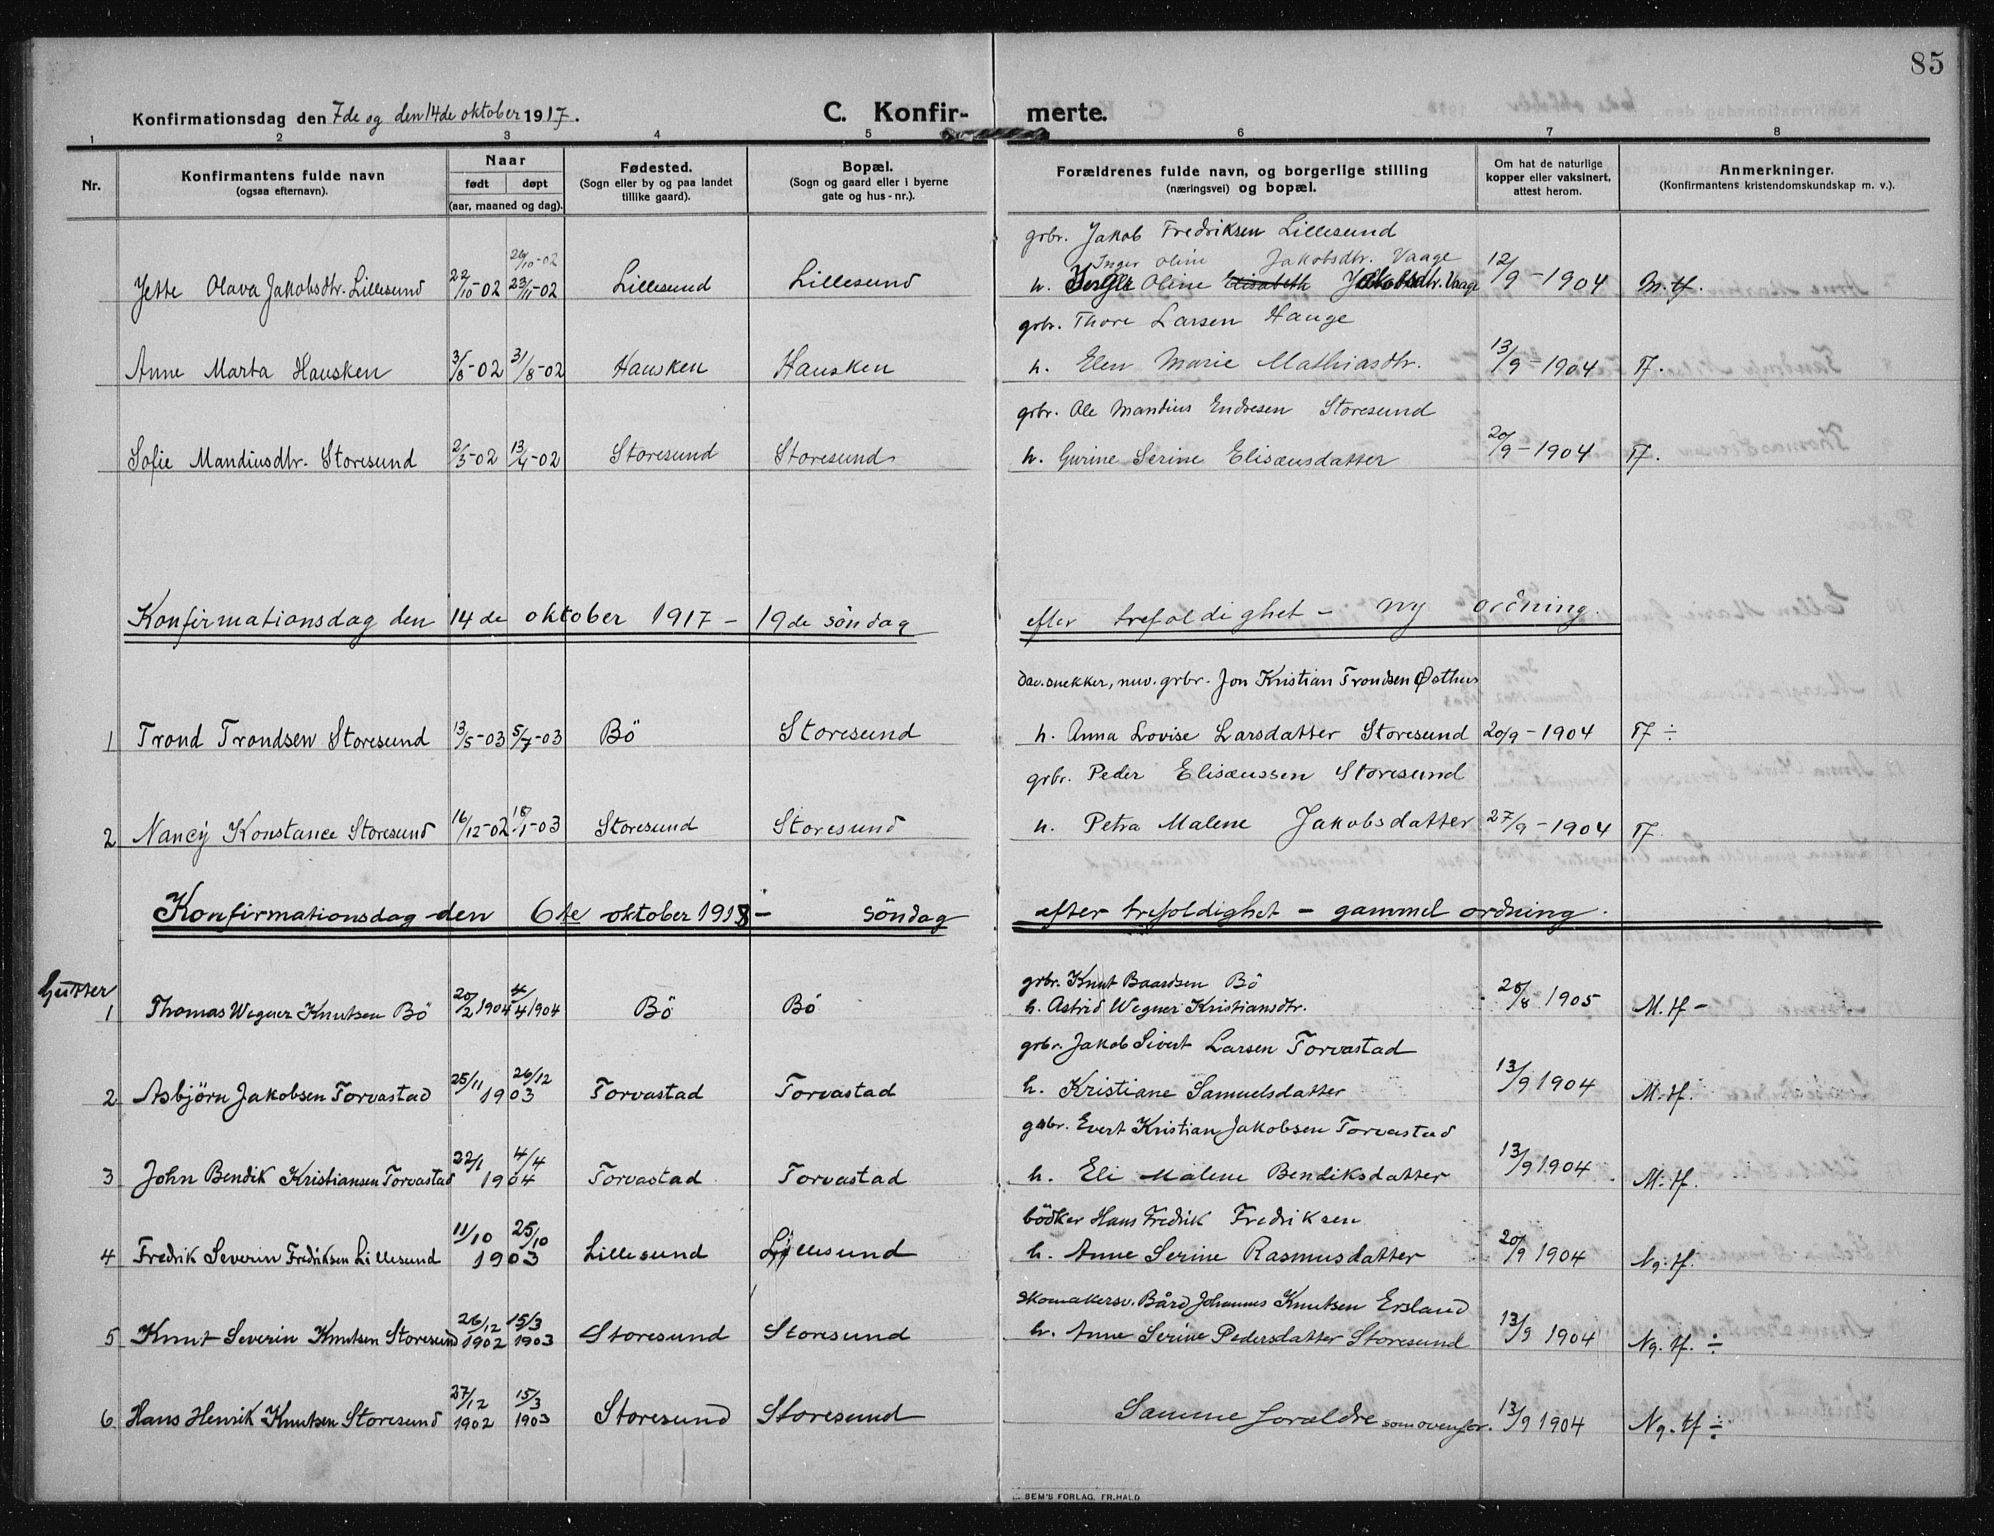 85
Konfirmationsdag den 7de og den 14de oktober 1917.
C. Konfir- merte.
1 2 3 4 5 6 7 8
Nr.
Konfirmantens fulde navn
(ogsaa efternavn).
Naar
født døpt
(aar, maaned og dag).
Fødested.
(Sogn eller by og paa landet
tillike gaard).
Bopæl.
(Sogn og gaard eller i byerne
gate og hus-nr.).
Forældrenes fulde navn, og borgerlige stilling
(næringsvei) og bopæl.
Om hat de naturlige
kopper eller vaksinert,
attest herom.
Anmerkninger.
(Konfirmantens kristendomskundskap m. v.).
grbr. Jakob Fredriksen Lillesund
26/10-02 Inger Oline Jakobsdtr. Vaage
Jette Olava Jakobsdtr. Lillesund 22/10-02 23/11-02 Lillesund Lillesund h. Oline Elisabeth Jakobsdtr. Vaage 12/9-1904 M. tf.
grbr. Thore Larsen Hauge
Anne Marta Hausken 3/8-02 31/8-02 Hausken Hausken h. Elen Marie Mathiasdtr. 13/9-1904 Tf.
grbr. Ole Mandius Endresen Storesund
Sofie Mandiusdtr. Storesund 2/3-02 13/4-02 Storesund Storesund h. Gurine Serine Elisæusdatter 20/9-1904 Tf.
Konfirmationsdag den 14de oktober 1917 - 19de söndag efter trefoldighet - ny ordning.
dav. snekker, nuv. grbr. Jon Kristian Trondsen Østhus
1 Trond Trondsen Storesund 13/5-03 5/7-03 Bö Storesund h. Anna Lovise Larsdatter Storesund 20/9-1904 Tf ÷
grbr. Peder Elisæussen Storesund
2 Nancy Konstance Storesund 16/12-02 18/1-03 Storesund Storesund h. Petra Malene Jakobsdatter 27/9-1904 Tf.
Konfirmationsdag den 6te oktober 1918 - söndag efter trefoldighet - gammel ordning.
Gutter
grbr. Knut Baardsen Bö
1 Thomas Wegner Knutsen Bö 20/2 1904 4/4 1904 Bö Bö h. Astrid Wegner Kristiansdtr. 28/8 1905 M. tf -
grbr. Jakob Sivert Larsen Torvastad
2 Asbjörn Jakobsen Torvastad 25/11 26/12 1903 Torvastad Torvastad h. Kristiane Samuelsdatter 13/9 1904 M. tf.
gbr. Evert Kristian Jakobsen Torvastad
3 John Bendik Kristiansen Torvastad 22/1 4/4 1904 Torvastad Torvastad h. Eli Malene Bendiksdatter 13/9 1904 M. tf.
bödker Hans Fredrik Fredriksen
4 Fredrik Severin Fredriksen Lillesund 11/10 25/10 1903 Lillesund Lillesund h. Anne Serine Rasmusdatter 20/9 1904 Ng. tf.
Skomakersv. Bård Johannes Knutsen Ersland
5 Knut Severin Knutsen Storesund 26/12 1902 15/3 1903 Storesund Storesund h. Anne Serine Pedersdatter Storesund 13/9 1904 Ng. tf. ÷
6 Hans Henrik Knutsen Storesund 27/12 1902 15/3 1903 Storesund Storesund Samme forældre som ovenfor. 13/9 1904 Ng. tf ÷
SEM'S FORLAG, FR.HALD